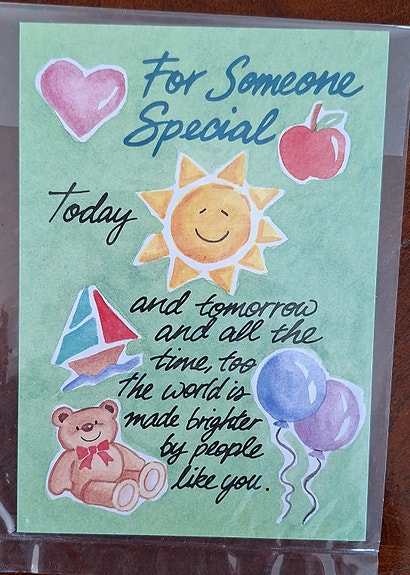 For Someone
Special
Today
and tomorrow
and all the
time, too
The world is
made brighter
by people
like you.